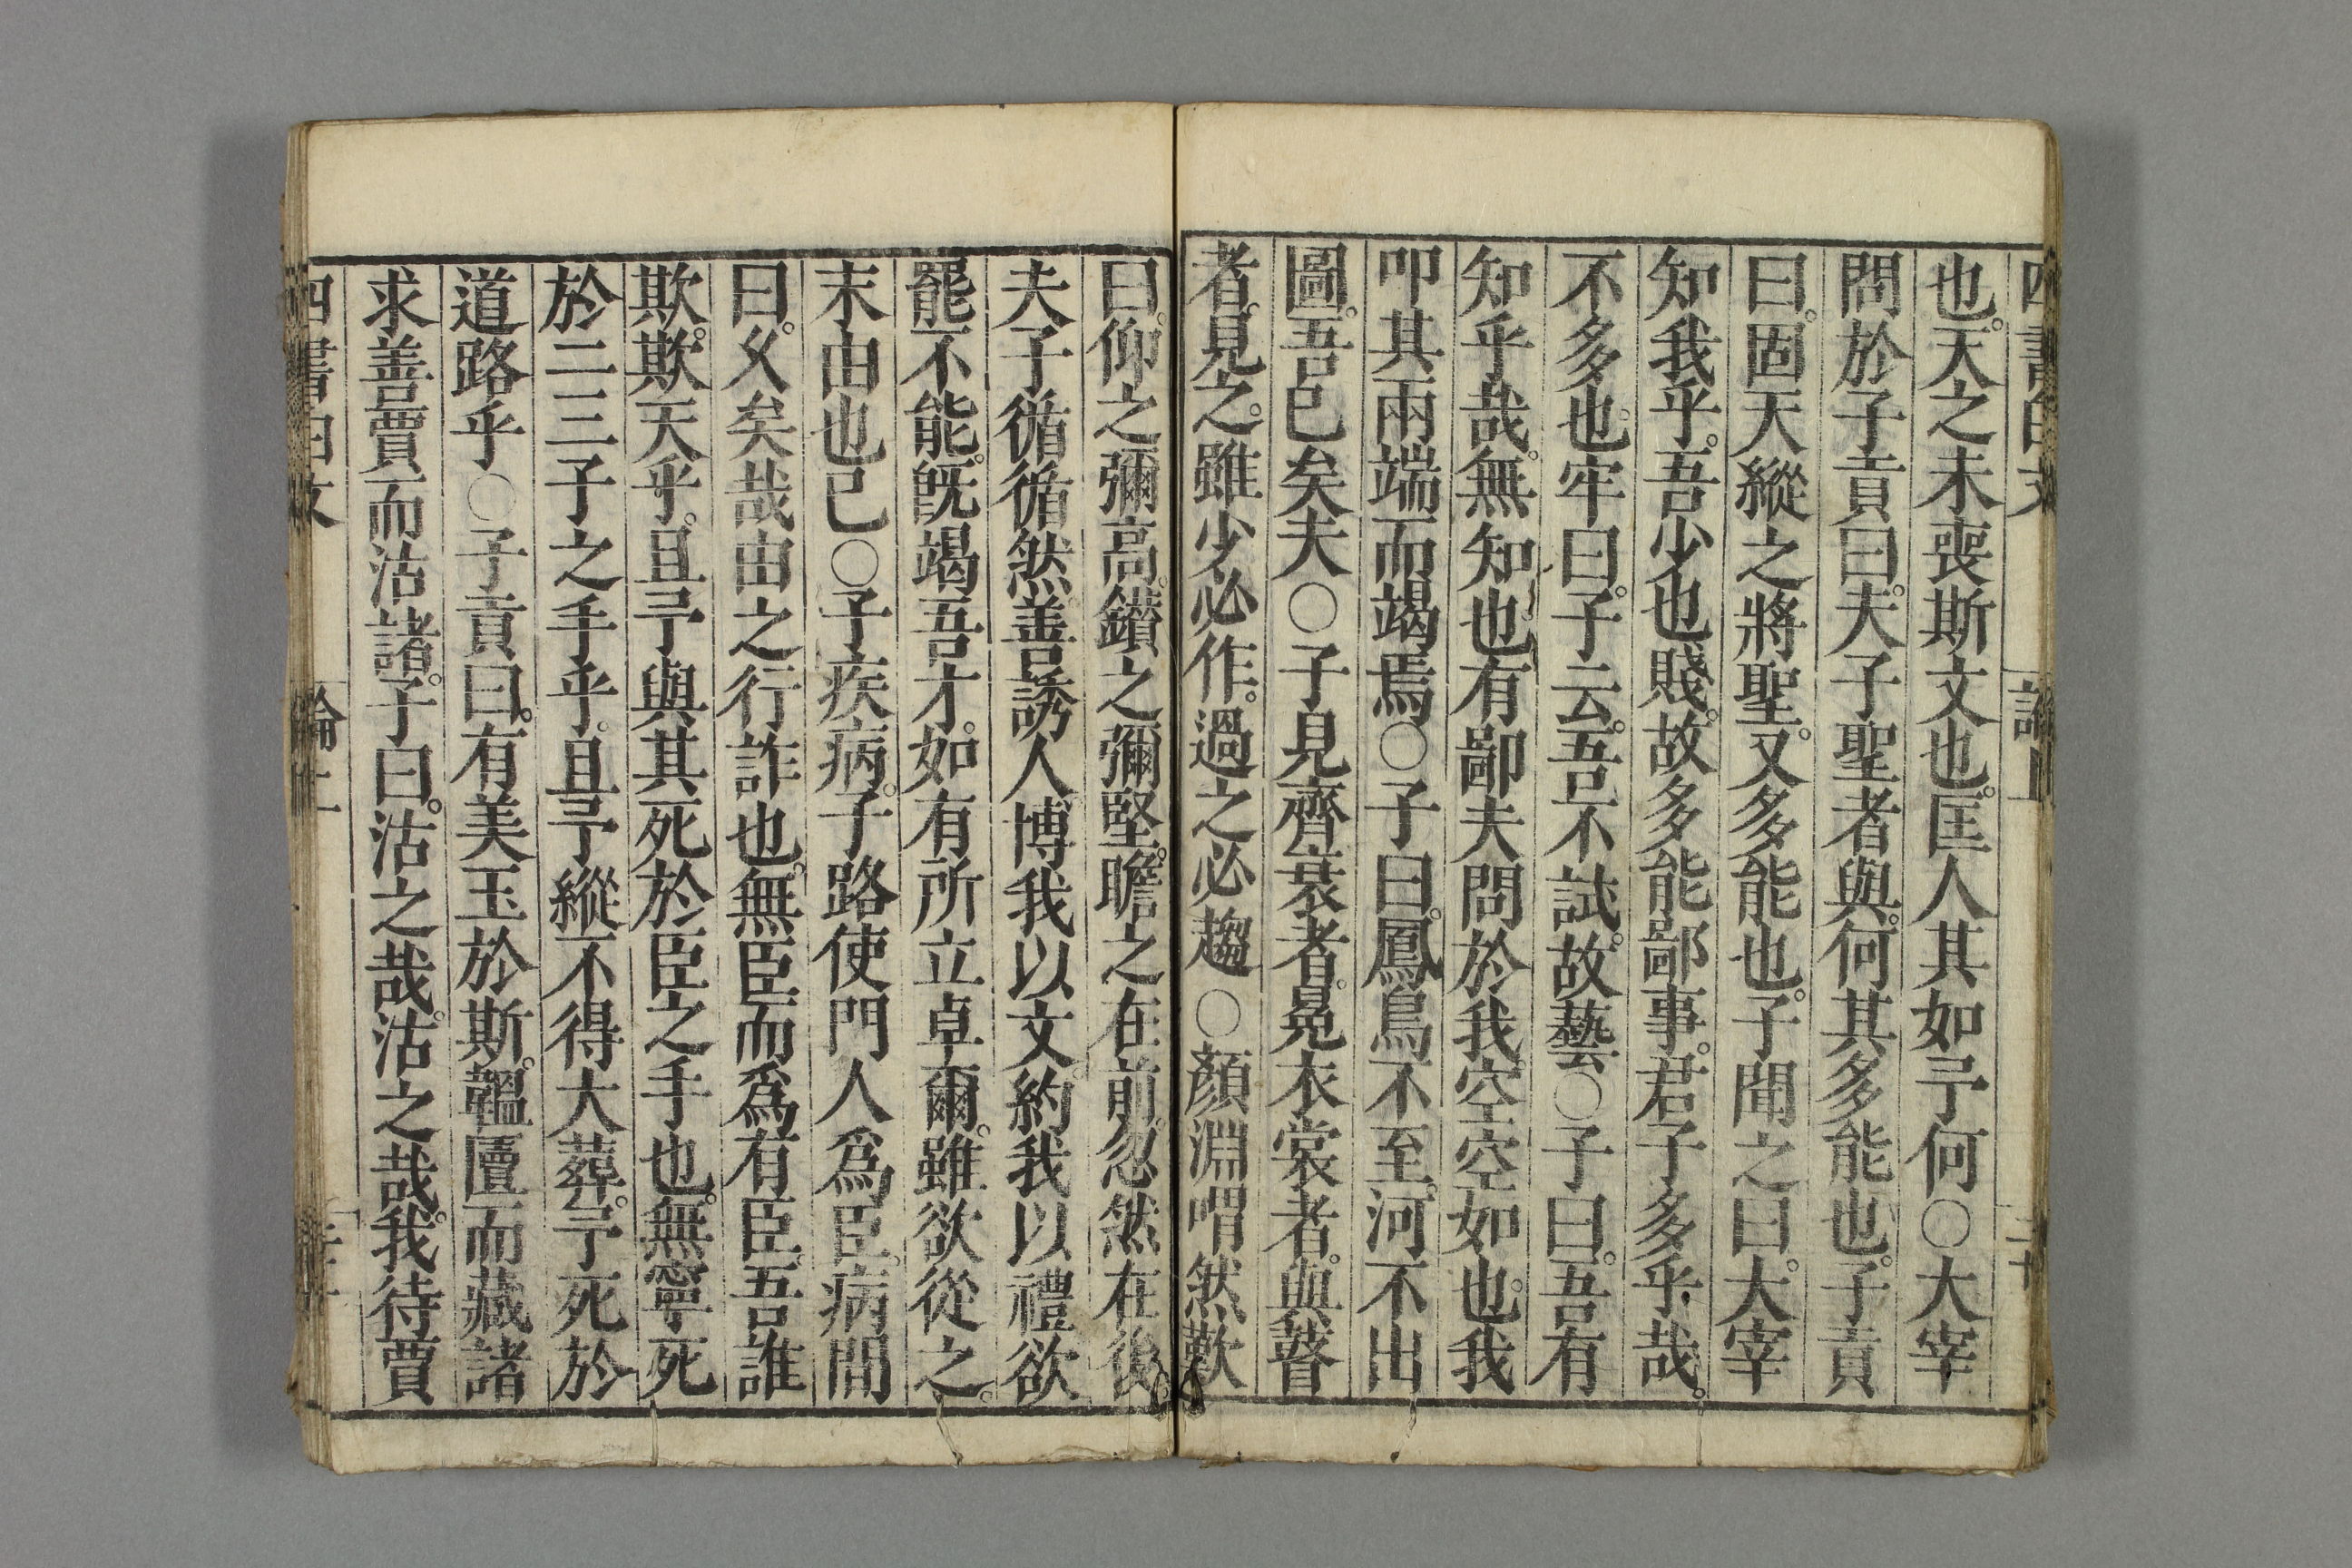 四書白文 論上 二十
也。天之未喪斯文也。匡人其如予何〇大宰
問於子貢曰。夫子聖者與。何其多能也。子貢
曰。固天縱之將聖。又多能也。子聞之曰。大宰
知我乎。吾少也賤。故多能鄙事。君子多乎哉。
不多也。牢曰。子云。吾不試。故藝〇子曰。吾有
知乎哉。無知也。有鄙夫問於我。空空如也。我
叩其兩端而竭焉〇子曰。鳳鳥不至。河不出
圖。吾已矣夫〇子見齊衰者。冕衣裳者。與瞽
者。見之。雖少必作。過之必趨〇顏淵喟然歎
曰。仰之彌高。鑚之彌堅。瞻之在前。忽然在後。
夫子循循然善誘人。博我以文。約我以禮。欲
罷不能。旣竭吾才。如有所立卓爾。雖欲從之。
末由也已〇子疾病。子路使門人爲臣。病間
曰。久矣哉由之行詐也。無臣而爲有臣。吾誰
欺。欺天乎。且予與其死於臣之手也。無寧死
於二三子之手乎。且予縱不得大葬。予死於
道路乎〇子貢曰。有美玉於斯。韞匵而藏諸
求善賈而沽諸。子曰。沽之哉。沽之哉。我待賈
四書白文 論上